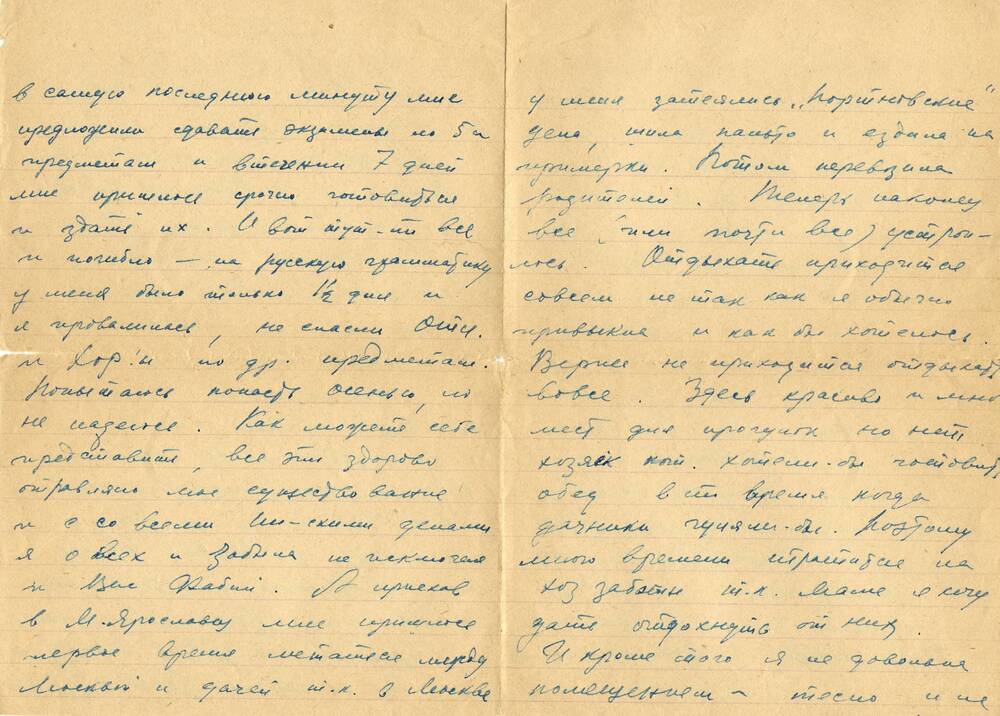 в самую последнюю минуту мне
предложили сдавать экзамены по 5и
предметам и втечении 7 дней
мне пришлось срочно готовиться
и здать их. И вот тут-то все
и погибло — на русскую грамматику
у меня было только 1½ дня и
я провалилась, не спасли Отл.
и Хор'и по др. предметам.
Попытаюсь попасть осенью, но
не надеюсь. Как можете себе
представить, все это здорово
отравляло мое существование
и с со всеми Ин-скими делами
я о всех и забыла не исключая
и Вас Фабий. А приехав
в М.Ярославец мне пришлось
первое время метаться между
Москвой и дачей т.к. в Москве
у меня затеялись „портновские"
дела, шила пальто и ездила на
примерки. Потом перевозила
родителей. Теперь наконец
все (или почти все) устрои-
лось. Отдыхать приходится
совсем не так как я обычно
привыкла и как бы хотелось.
Вернее не приходится отдыхать
вовсе. Здесь красиво и много
мест для прогулок но нет
хозяек кот. хотели-бы готовить
обед в то время когда
дачники гуляли-бы. Поэтому
много времени тратится на
хоз заботы т.к. маме я хочу
дать отдохнуть от них.
И кроме того я не довольна
помещением — тесно и не